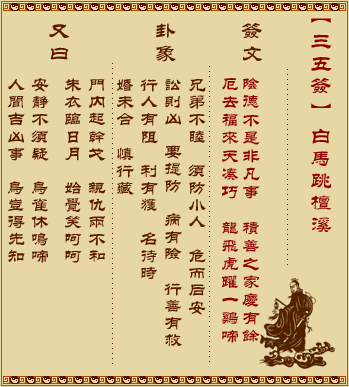 【三五簽】 白馬跳檀溪
簽文
陰德不是非凡事 積善之家慶有餘
厄去福來天湊巧 龍飛虎躍一鷄啼
卦象
兄弟不睦 須防小人 危而后安
訟則凶 要提防 病有險 行善有救
行人有阻 利有獲 名待時
婚未合 慎行藏
又曰
門內起幹戈 親仇兩不和
朱衣臨日月 始覺笑呵呵
安靜不須疑 鳥雀休鳴啼
人間吉凶事 鳥豈得先知